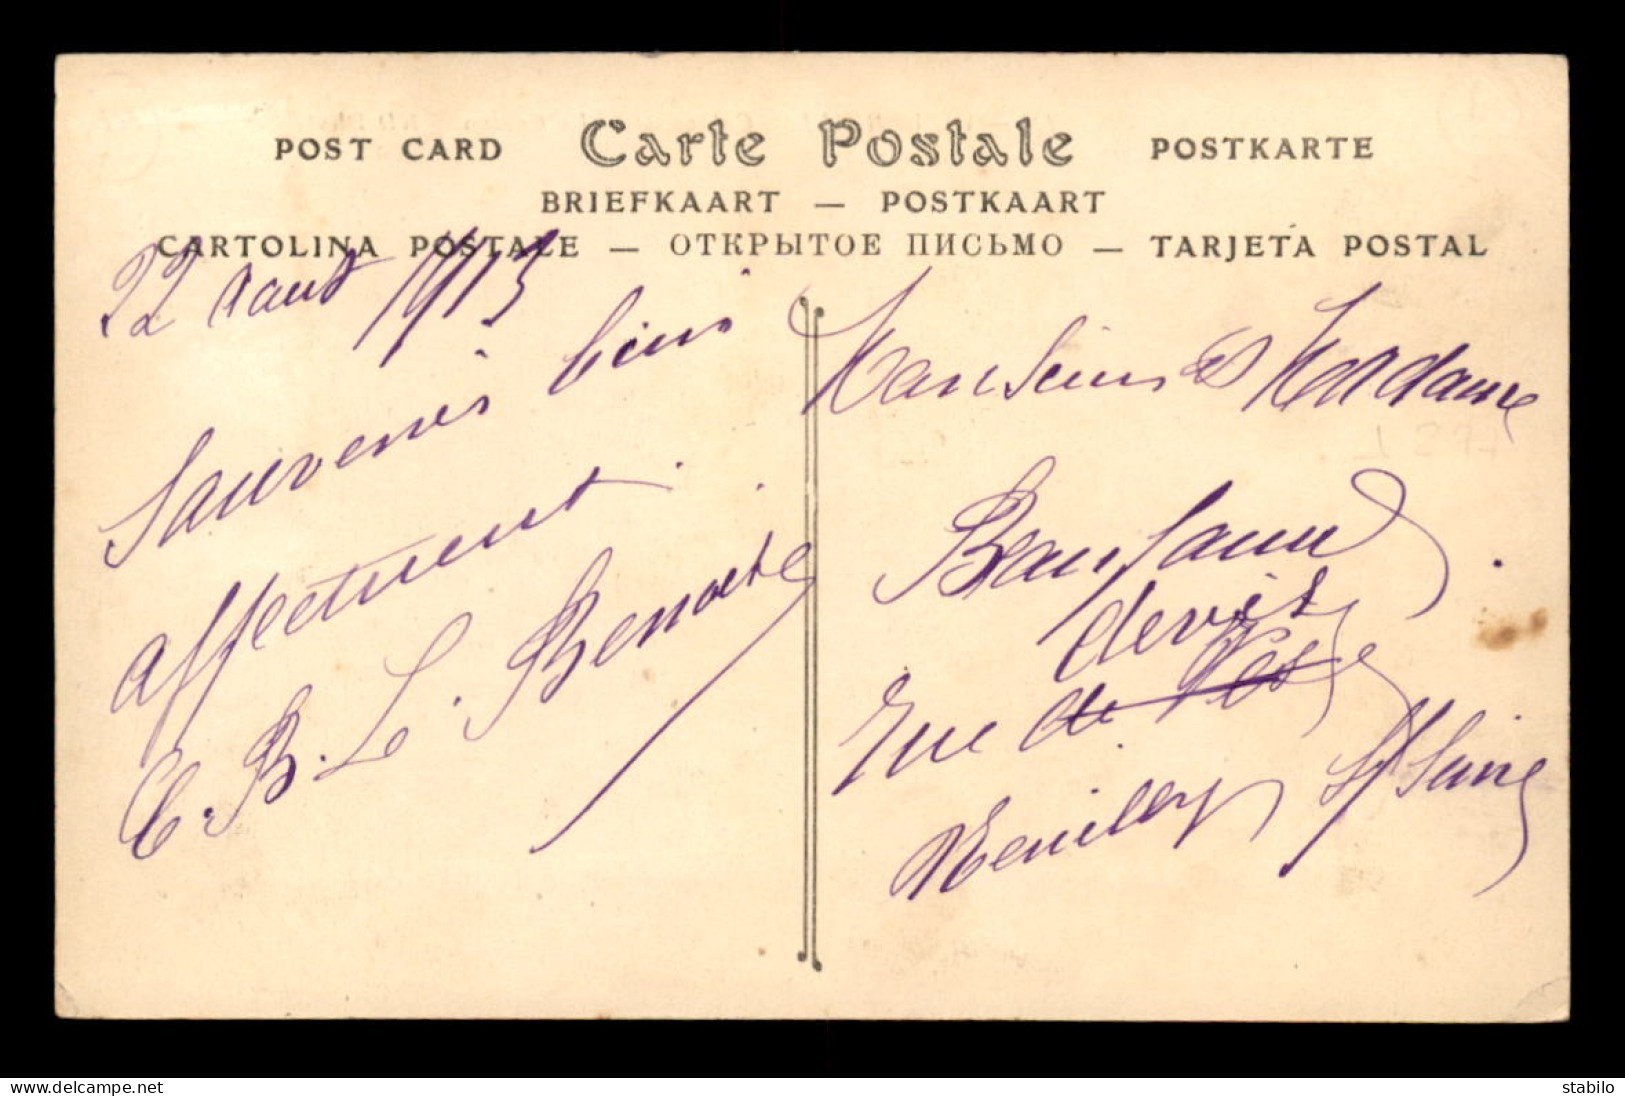 POST CARD Carte Postale POSTKARTE
BRIEFKAART — POSTKAART
CARTOLINA POSTALE — ОТКРЫТОЕ ПИСЬМО — TARJETA POSTAL
22 aout 1913
Souvenirs bien
affectueux
B. L. Benoite
Monsieur et Madame
rue
Neuilly S/Seine
www.delcampe.net
stabilo